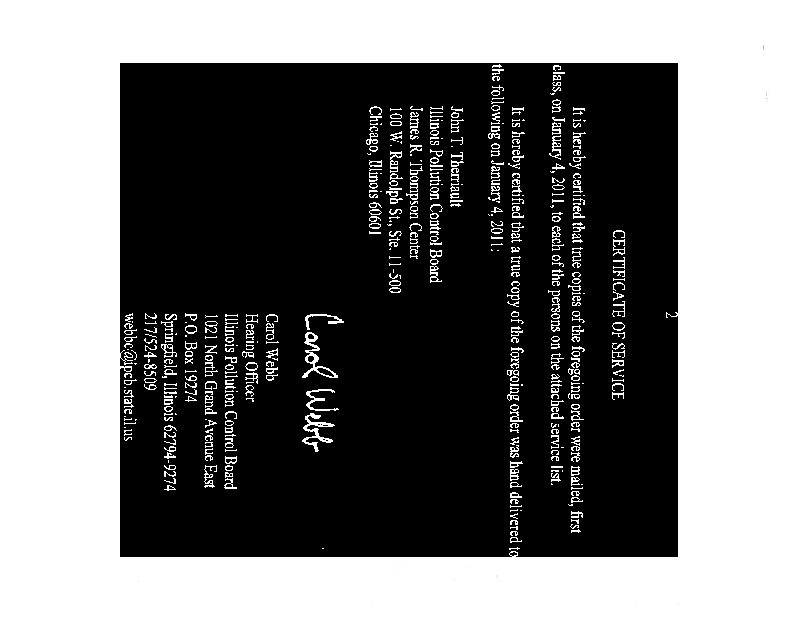 2
CERTIFICATE OF SERVICE
It is hereby certified that true copies of the foregoing order were mailed, first
class, on January 4, 2011, to each of the persons on the attached service list.
It is hereby certified that a true copy of the foregoing order was hand delivered to
the following on January 4, 2011:
John T. Therriault
Illinois Pollution Control Board
James R. Thompson Center
100 W. Randolph St., Ste. 11-500
Chicago, Illinois 60601
Carol Webb
Carol Webb
Hearing Officer
Illinois Pollution Control Board
1021 North Grand Avenue East
P.O. Box 19274
Springfield, Illinois 62794-9274
217/524-8509
webbc@ipcb.state.il.us